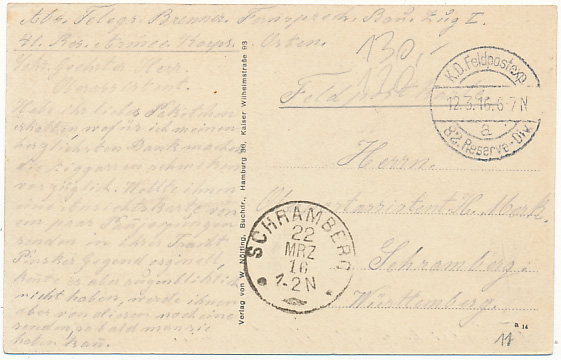 Abs. Telegr. Brenner. Fernsprech. Bau. Zug I.
41. Res. Armee. Korps. Osten.
Sehr Geehrter Herr.
Oberassistent.
Habe ihr liebes Paketchen
erhalten, wofür ich meinen
herzlichsten Dank mache
die Ziggaren schmeckten
vorzüglich. Wollte ihnen
eine Ansichtskarte von
paar
senden in ihre Tracht
Pinsker Gegend originell
aber augenblicklich
nicht haben, werde ihnen
aber von diesen noch eine
senden, sobald man sie
haben kan.
Verlag von W. Nölting, Buchdr., Hamburg 36, Kaiser Wilhelmstraße 93
130
Feldpost
K.D. Feldpostexp.
12.3.16. 6-7N
a
82. Reserve-Div.
Herrn.
Oberpostassistent H. Merk.
Schramberg:
Württemberg.
SCHRAMBERG
22
MRZ
16
1-2N
a 14
11